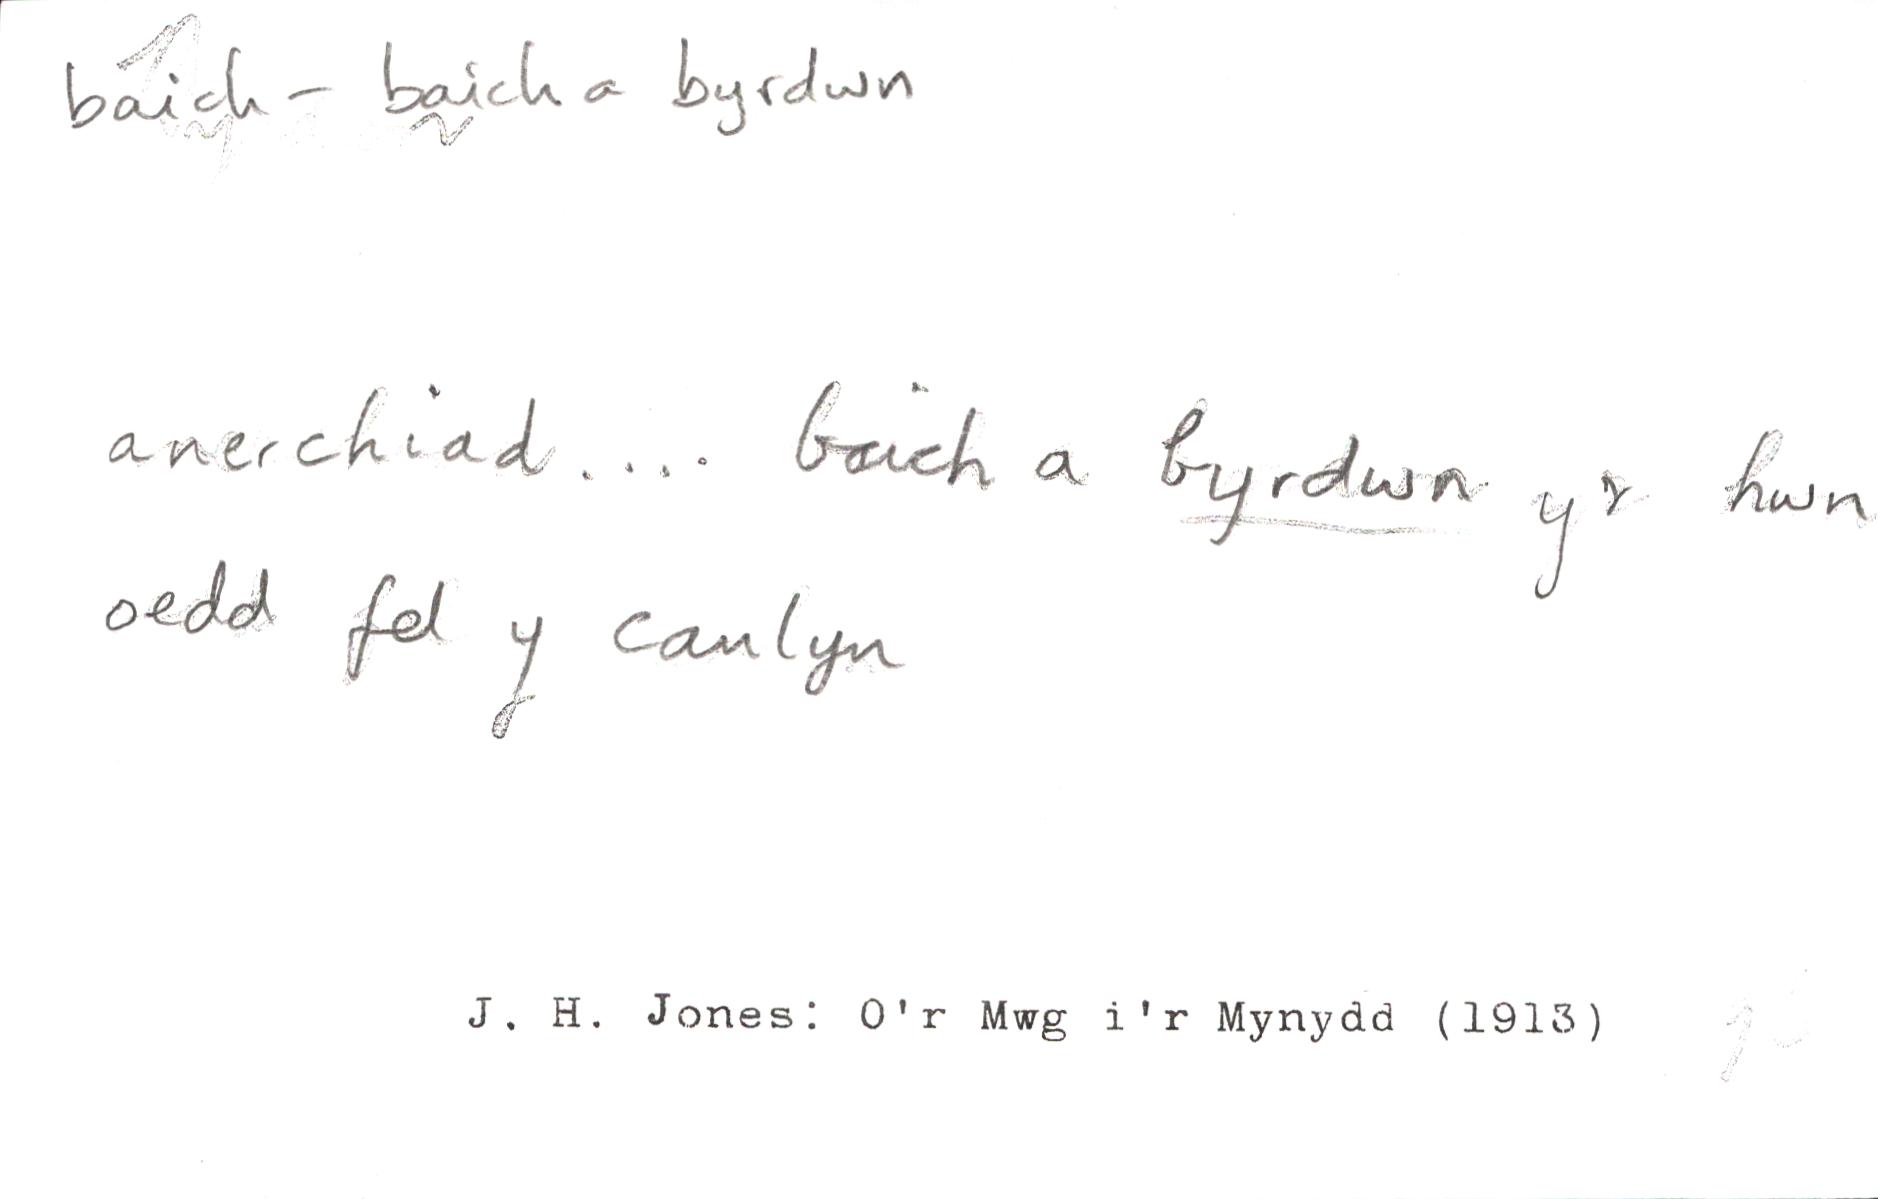 baich – baich a byrdwn
anerchiad.... baich a byrdwn yr hwn
oedd fel y canlyn
J. H. Jones: O'r Mwg i'r Mynydd (1913)